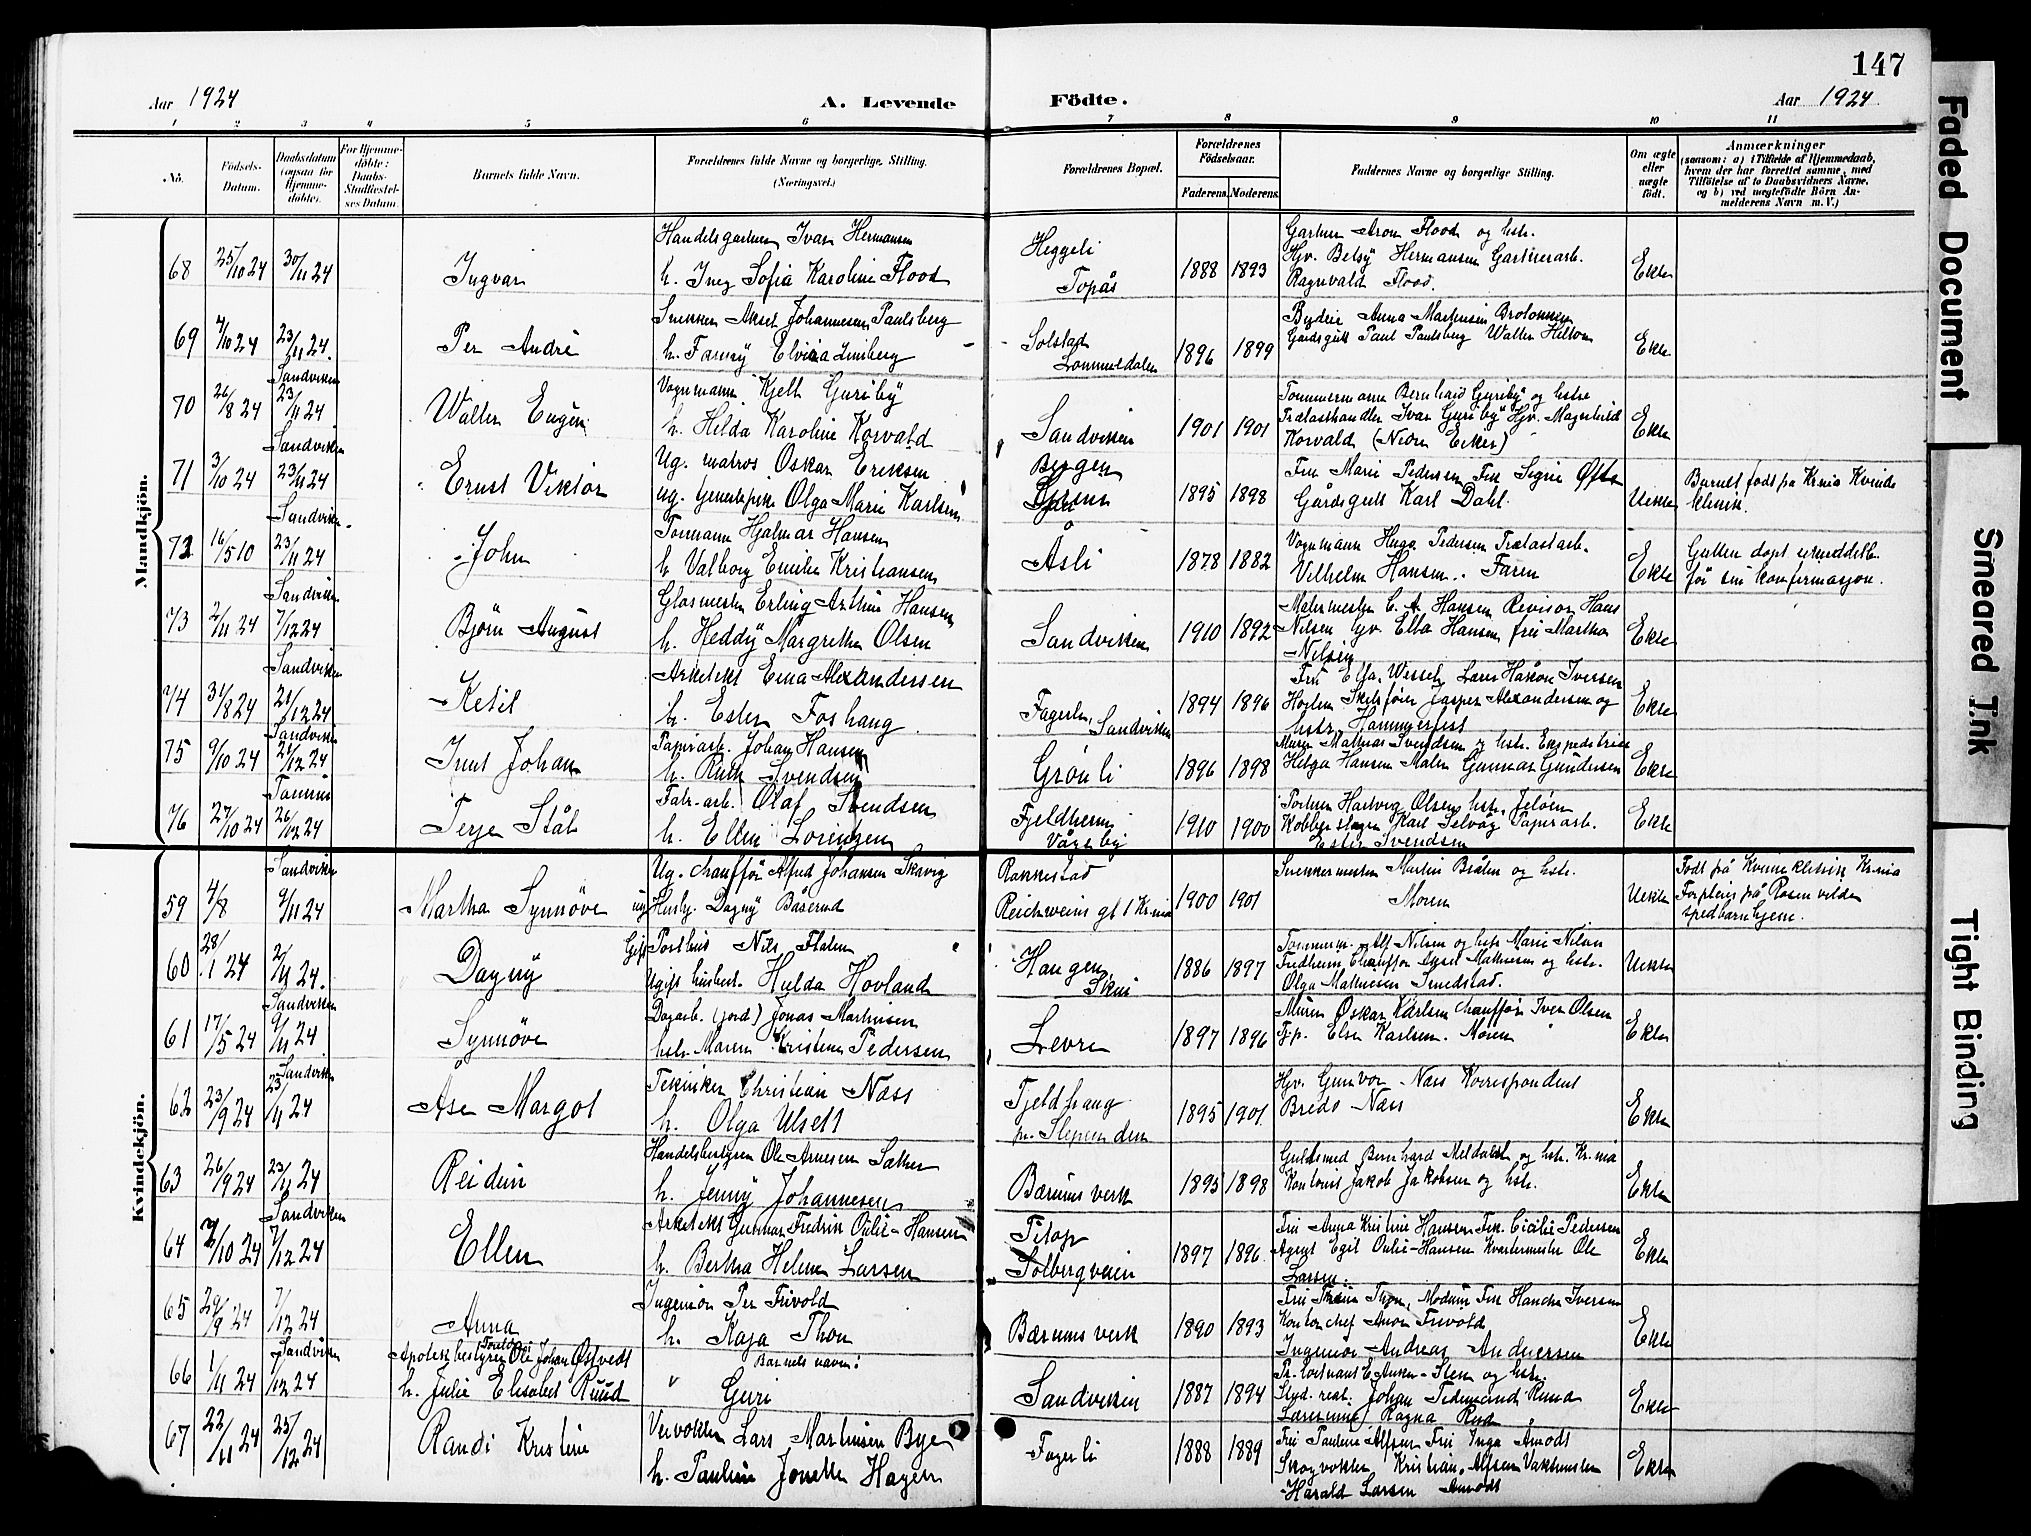 147
Aar 1924 A. Levende Födte. Aar 1924
1 2 3 4 5 6 7 8 9 10 11
No.
Födsels-Datum.
Daabsdatum (ogsaa for Hjemme-döbte).
For Hjemme-döbte: Daabs-Stadfæstelses Datum.
Barnets fulde Navn.
Forældrenes fulde Navne og borgerlige Stilling. (Næringsvei.)
Forældrenes Bopæl.
Forældrenes Födselsaar.
Faderens. Moderens.
Faddernes Navne og borgerlige Stilling.
Om ægte eller uægte födt.
Anmærkninger
(saasom: a) i Tilfælde af Hjemmedaab, hvem der har forrettet samme, med Tilföielse af to Daabsvidners Navne, og b) ved uægtefödte Börn Anmelderens Navn m. V.)
Mandkjön.
68 25/10 24 30/11 24 Ingvar
Handelsgartner Ivar Hermansen
h. Ing Sofia Karoline Flood
Heggeli
Topås
1888 1893
Gartner Aron Flood og hstr.
Hjv. Betsy Hermansen Gartnerarb.
Ragnvald Flood.
Ekte
69 4/10 24 23/11 24. Per André
Snekker Aksel Johannesen Paulsberg
h. Fanny Elvira Limberg
Solstad
Lommedalen
1896 1899
Anna Martinsen
Gårdsgutt Paul Paulsberg Walter
Ekte
Sandviken
70 26/8 24 23/11 24 Walter Eugen
Vognmann Kjell Guriby
h. Hilda Karoline Korvald
Sandviken
1901 1901
Tømmermann Bernhard Guriby og hstr
Trælasthandler Ivar Guriby Hjv. Magnhild
Korvald (Nedre Eiker)
Ekte
Sandviken
71 3/10 24 23/11 24 Ernst Viktor
Ug. matros Oskar Eriksen
ug. Olga Marie Karlsen
Bergen
1895 1898
Fru Marie Pedersen Fru Signe
Gårdsgutt Karl Dahl.
Uekte
Barnet født på Kr.nia Kvinde
klinik.
Sandviken
72 16/5 10 23/11 24 John
Formann Hjalmar Hansen
h Valborg Emilie Kristiansen
Åsli
1878 1882
Vognmann Hugo Pedersen Trælastarb.
Vilhelm Hansen. Faren
Ekte
Gutten døpt umiddelb.
før sin konfirmasjon.
Sandviken
73 2/11 24 7/12 24 Bjørn August
Glasmester Erling Arthur Hansen
h. Heddy Margrethe Olsen
Sandviken
1910 1892
Malermester C. A. Hansen Revisor Hans
Nilsen hjv. Ella Hansen frú Martha
Nilsen
Ekte
Sandviken
74 31/8 24 21/12 24 Ketil
Arkitekt Alexandersen
h. Ester Foshaug
Sandviken
1894 1896
Fru Ella Wessel Håkon Iversen
Jasper Alexandersen og
hstr, Hammerfest
Ekte
Sandviken
75 9/10 24 21/12 24 Johan
Papirarb. Johan Hansen
h. Ruth Svendsen
Grønli
1896 1898
Murer Mathias Svendsen og hstr. Ekspeditrise
Helga Hansen Maler Gunnar Gundersen
Ekte
Tanum
76 27/10 24 26/12 24 Terje Stål
Fabr.arb. Olaf Svendsen
h. Ellen Lorentzen
Fjeldheim
Vøyenby
1910 1900
Portner Hartvig Olsen hstr. Jeløen
Kobberslager Karl Selvåg Papirarb.
Ester Svendsen
Ekte
Kvindekjön.
Sandviken
59 4/8 9/11 24 Martha Synnøve
Ug. chauffør Alfred Johansen Skavig
ug Husbg. Dagny Båserud
Rakkestad
Reichweins gt 1 Kr.nia
1900 1901
Snekkermester Martin Bråten og hstr.
Moren
Uekte
Født på Kvinneklinikk Kr.nia
Forpleies på Rosenvilde
spedbarnhjem.
60 28/1 24 2/11 24. Dagny
Gift Postbud Nils Flaten
Ugift husbest. Hulda Hovland
Haugen,
Skui
1886 1897
Tømmerm. Alf Nilsen og hstr Marie Nilsen
Fredheim Chauffør Aksel Mathiesen og hstr.
Olga Mathiesen Smedstad.
Uekte
Sandviken
61 17/5 24 9/11 24 Synnøve
Dagarb. (jord) Jonas Martinsen
hstr Maren Kristine Pedersen
Levre
1897 1896
Murer Oskar Karlsen chauffør Iver Olsen
Tjp. Else Karlsen. Moren
Ekte
Sandviken
62 23/9 24 23/11 24 Åse Margot
Tekniker Christian Næss
h. Olga Ulsett
Fjeldhaug
pr. Slependen
1895 1901
Hjv. Gunvor Næss Korrespondent
Bredo Næss
Ekte
63 26/9 24 23/11 24 Reidun
Handelsbestyrer Ole Arnesen Sæther
h. Jenny Johannesen
Bærums verk
1895 1898
Guldsmed Bernhard Meldahl og hstr. Kr.nia
Kontorist Jakob Jakobsen og hstr.
Ekte
Sandviken
64 /10 24 7/12 24 Ellen
Arkitekt Gunnar Fredrik Onlie-Hansen
h. Bertha Helene Larsen
Titop
Solbergveien
1897 1896
Fru Anna Kristine Hansen Frk. Cecilie Pedersen
Agent Egil Onlie-Hansen Kvartermester Ole
Larsen.
Ekte
65 29/9 24 7/12 24 Anna
Ingeniør Per Frivold
h. Kaja Thon
Bærums verk
1890 1893
Fru Thon, Modum Frk Hanche Iversen
Kontorchef Frivold
Ingeniør Andreas Andersen
Ekte
Sandviken
66 1/11 24 /12 24
Foreldre:
Apotekbestyrer Ole Johan Østvedt
h. Julie Elisabet Ruud
Barnets navn:
" Guri
Sandviken
1887 1894
Pr. løitnant E. Anker-Steen og hstr.
Stud. real. Johan Tidemand Ruud
Lærerinne Ragna Ruud
Ekte
67 22/11 24 25/12 24 Randi Kristine
Veivokter Lars Martinsen Bye
h. Pauline Jonette Hagen
Fagerli
1888 1889
Fru Pauline Alfsen Fru Inga Åmodt
Skogvokter Kristian Alfsen Vaktmester
Harald Larsen Åmodt
Ekte
Faded Document
Smeared Ink
Tight Binding